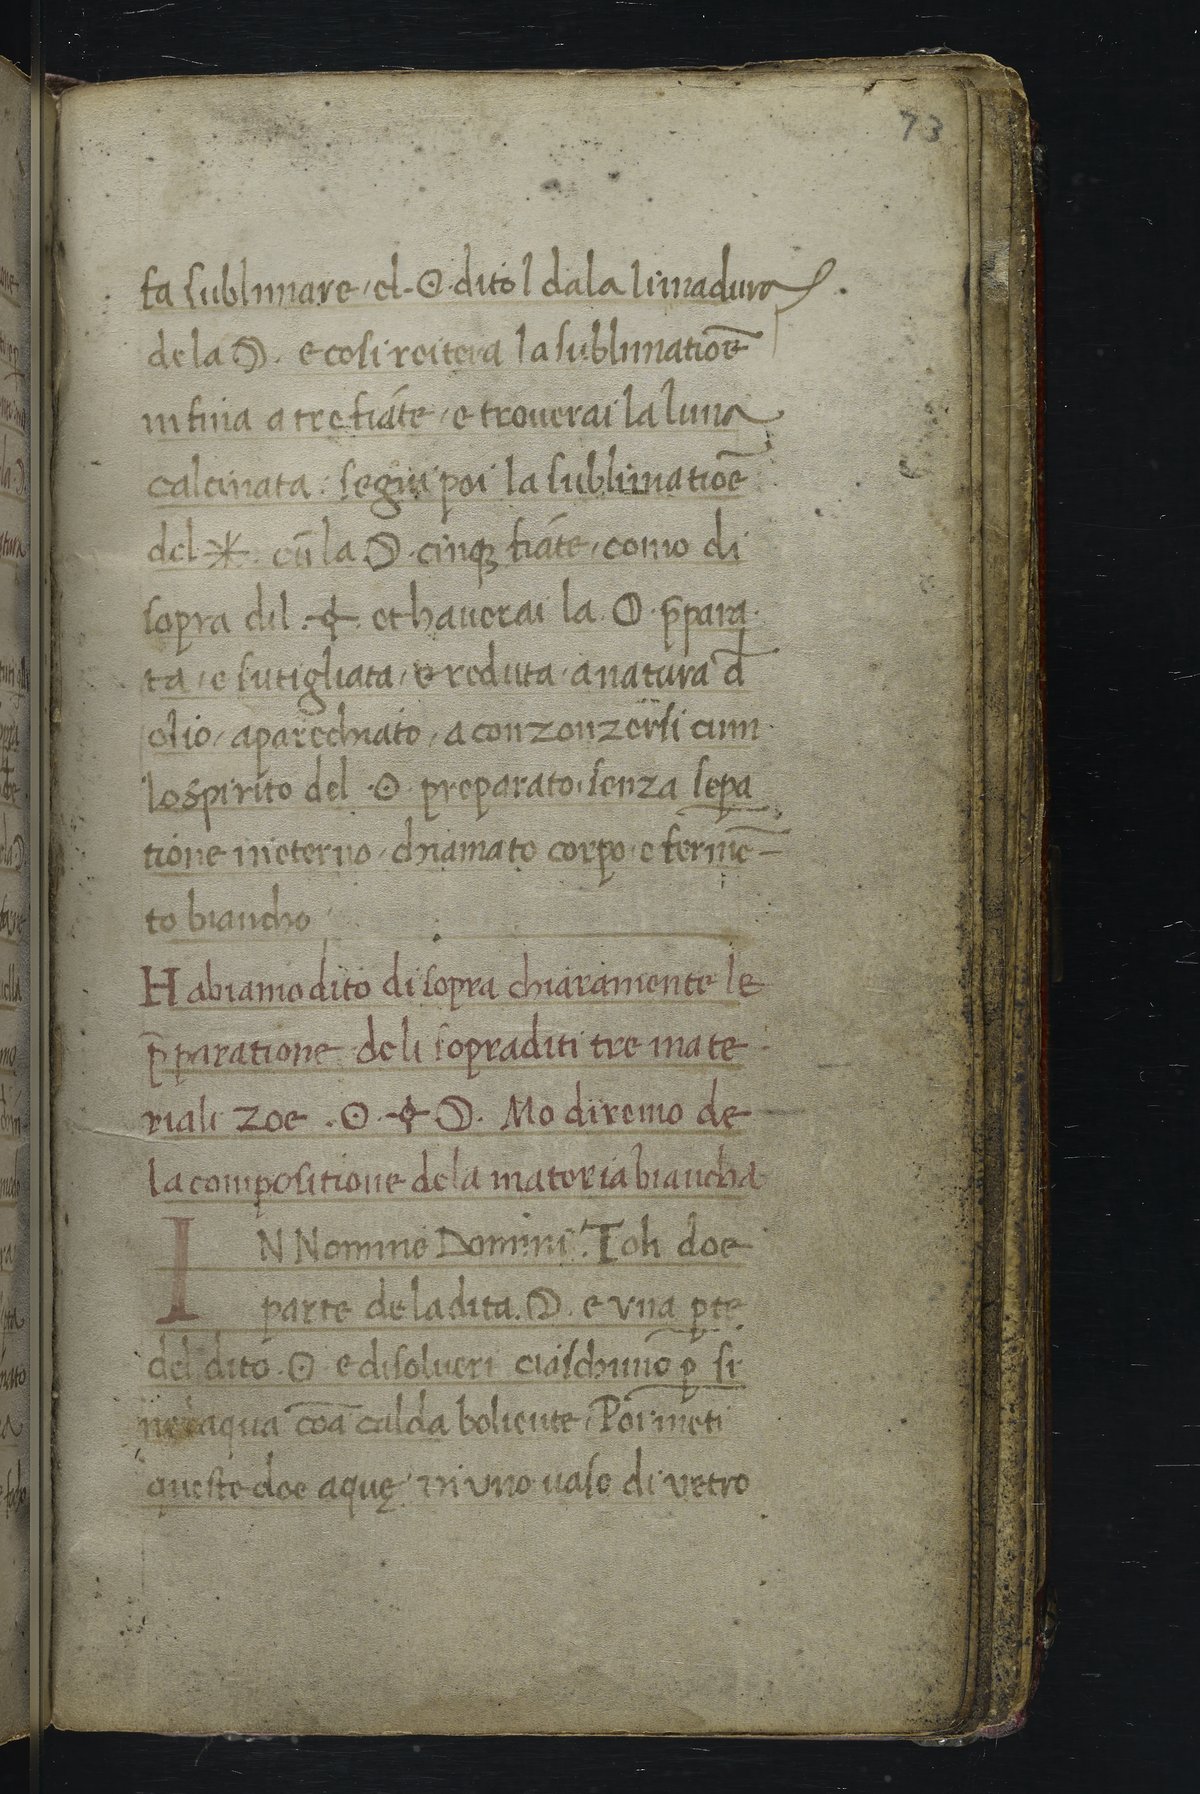 73
fa sublimare, el ☉ dito l dala limadura
de la ☽. e cosi reitera la sublimatiōe
infina a tre fiāte, e troverai la luna
calcinata. segui poi la sublimatiōe
del ✳. cū la ☽. cinqꝫ fiāte, como di
sopra dil . et haverai la . p̄para
ta, e sutigliata, e reduta, a natura d̄
olio, aparechiato, a conzonzersi cum
lo spirito del ☉ preparato, senza sepa
tione in eterno, chiamato corpo, e fermē
to biancho
Habiamo dito di sopra chiaramente le
p̄paratione deli sopraditi tre mate
riali zoe . ☉ . ☽. Mo diremo de
la compositione dela materia biancha
IN Nomine Domini. Toli doe
parte de la dita. ☽. e una ꝑte
del dito ☉ e disolveri ciaschuno ꝑ si
ne aqua cōa calda boliente, Poi meti
queste doe aquę in uno vaso di vetro